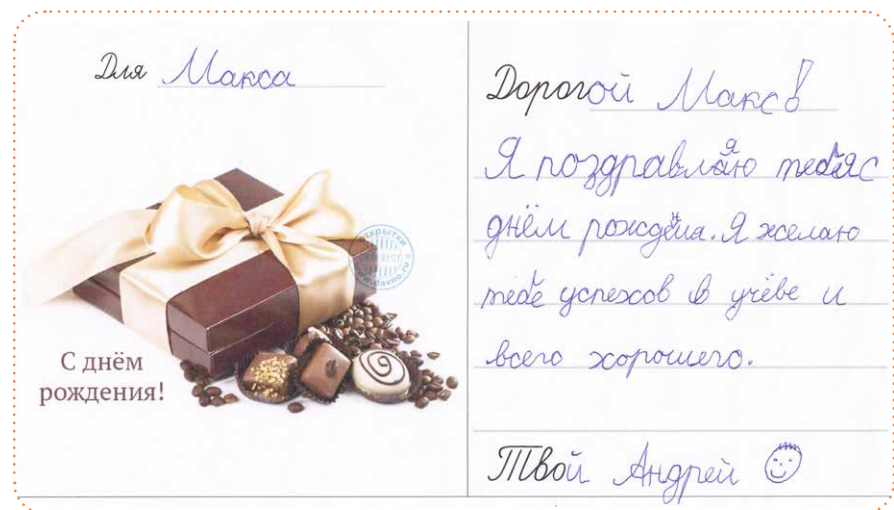 Для Макса
С днём
рождения!
Дорогой Макс!
Я поздравляю тебя с
днём рождения. Я желаю
тебе успехов в учёбе и
всего хорошего.
Твой Андрей